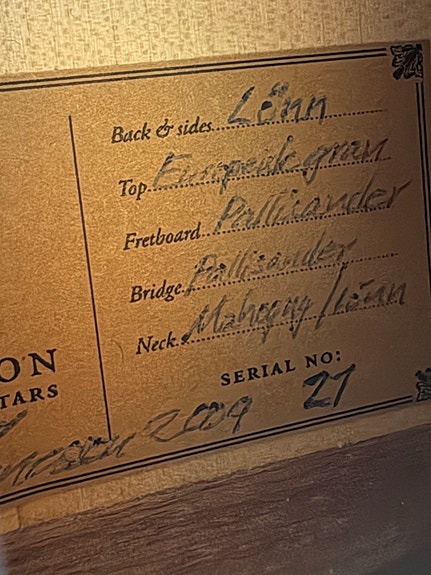 Back & sides Lönn
Top Europeisk gran
Fretboard Pallisander
Bridge Pallisander
Neck Mahogny/lönn
SERIAL NO:
27
ON
TARS
2009